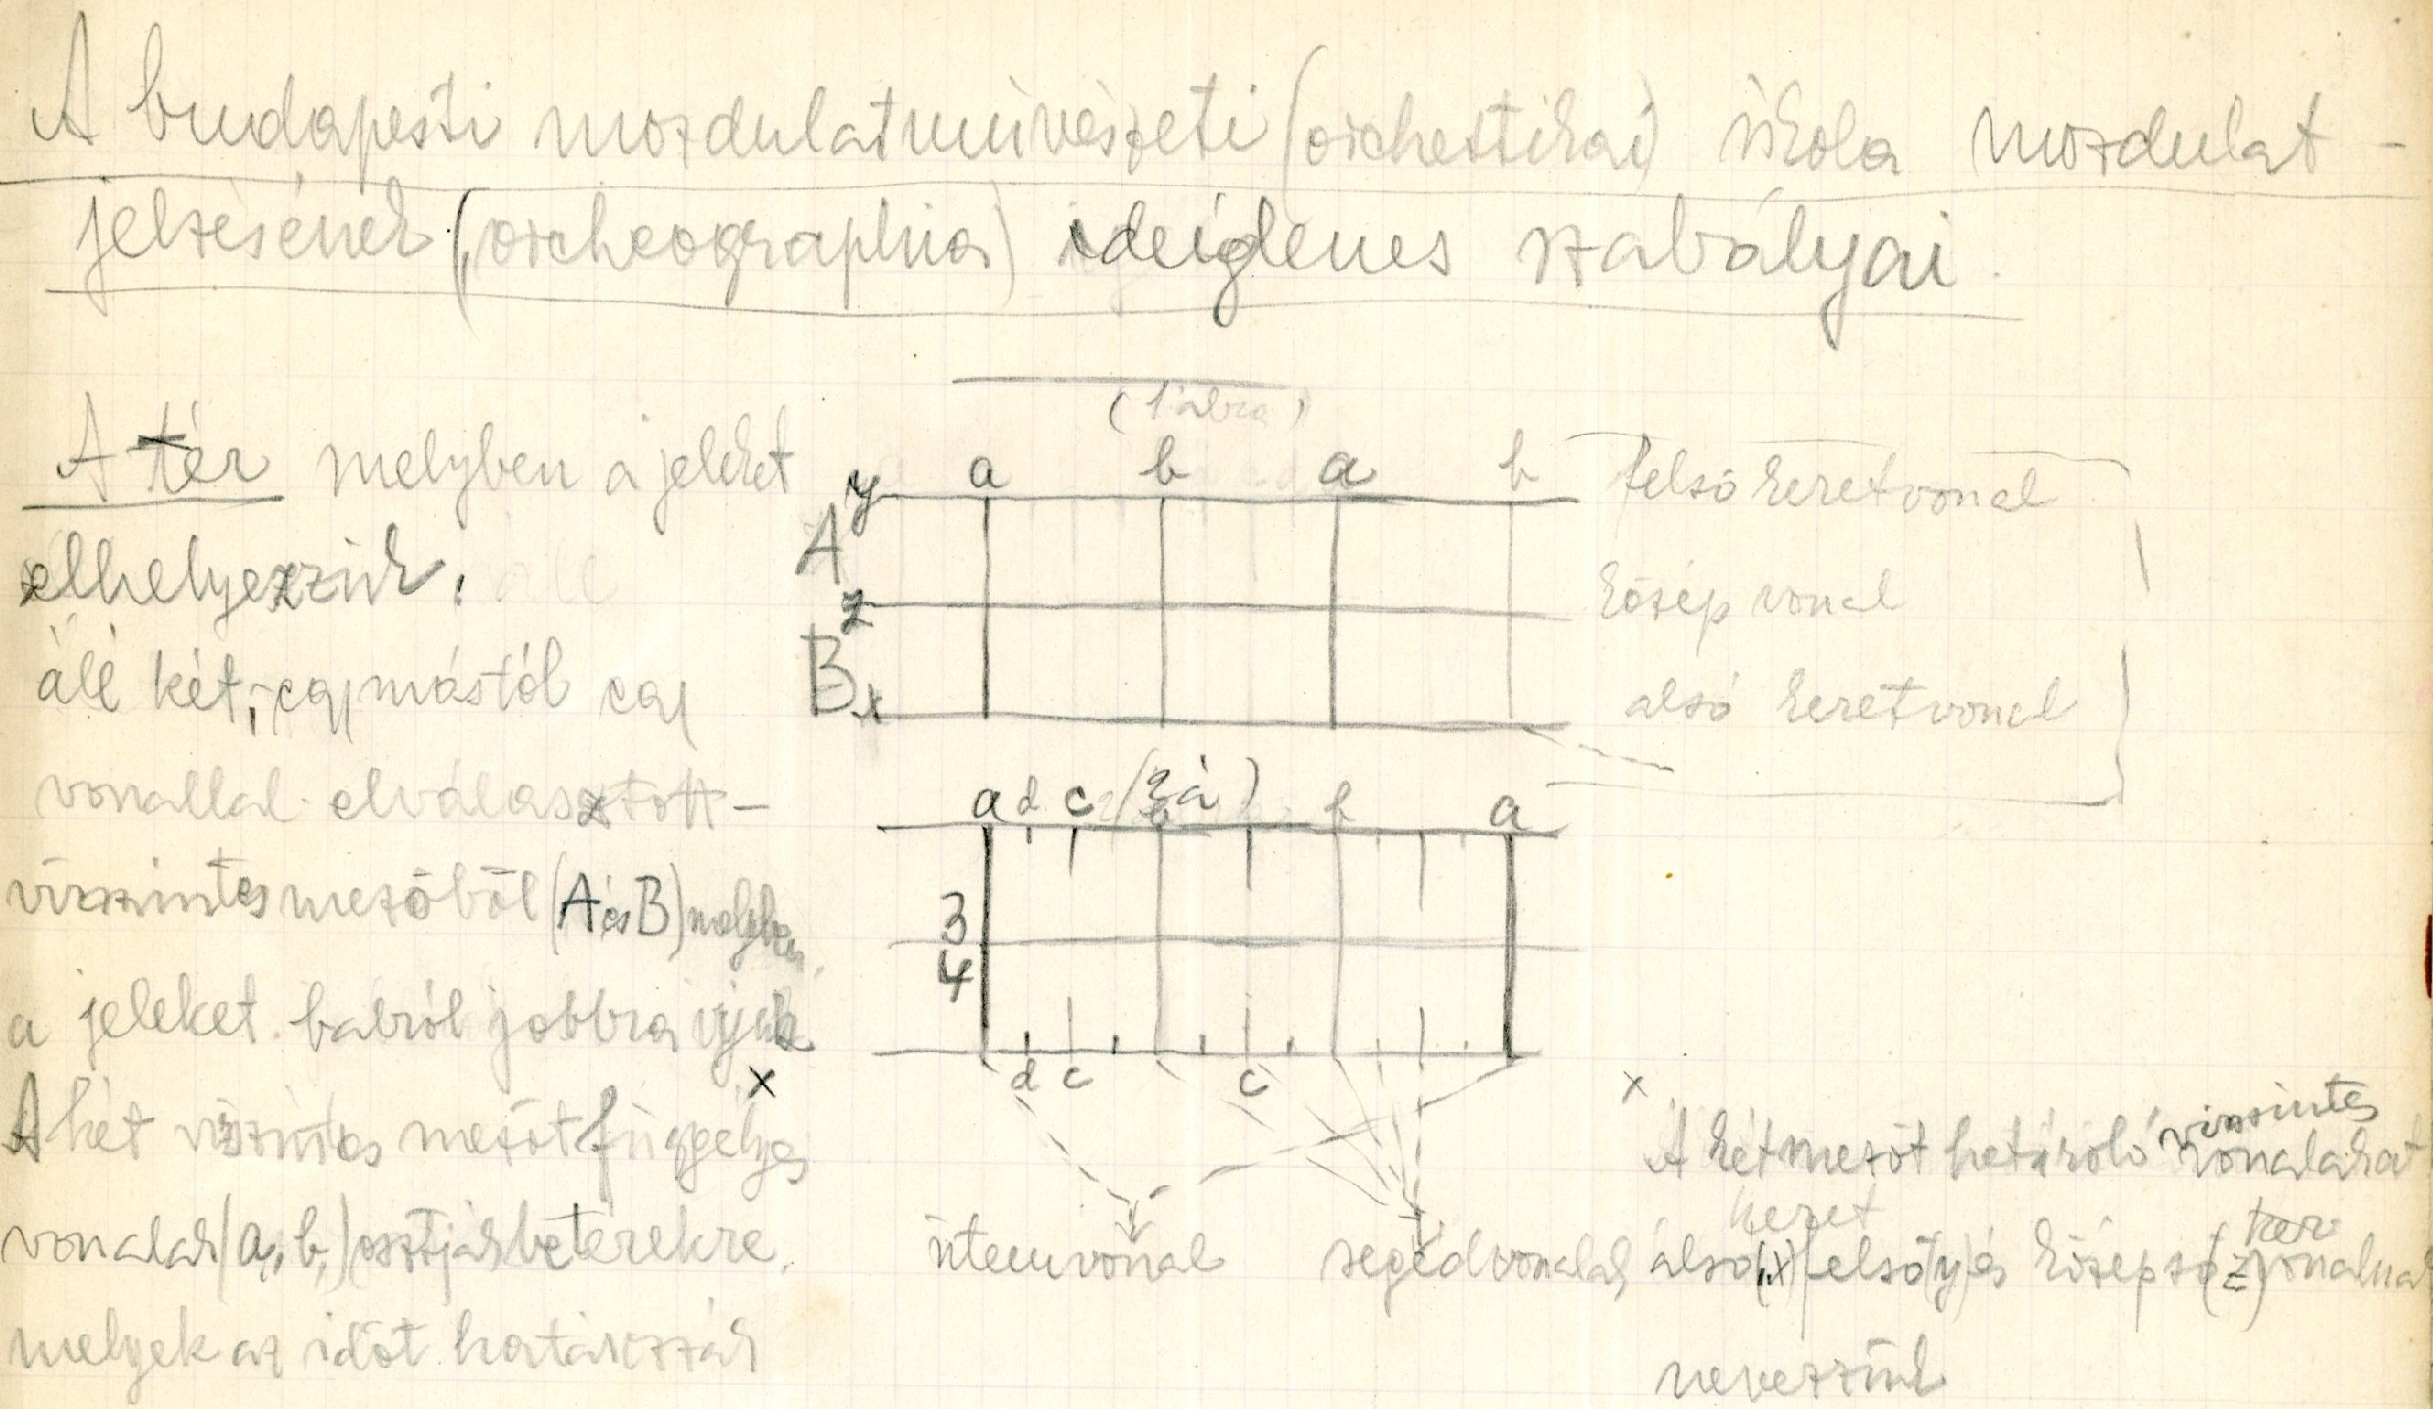 A budapesti mozdulatművészeti (orchestikai) iskola mozdulat-
jelzésének (orcheographia) ideiglenes szabályai.
(1 ábra)
A tér melyben a jeleket
elhelyezzük,
áll két, egymástól egy
vonallal elválasztott-
vízszintes mezőből (A és B) melyben
a jeleket balról jobbra írjuk
x
A két vízszintes mezőt függélyes
vonalak (a, b,) osztják be terekre,
melyek az időt határozzák
a b a b
y
A
z
B
x
felső keretvonal
közép vonal
alsó keretvonal
(2 á)
a d c b b a
3
4
d c c
ütemvonal segédvonalak
x
A két mezőt határoló vízszintes vonalakat
keret ker
alsó (x) felső (y) és középső (z) vonalnak
nevezzük